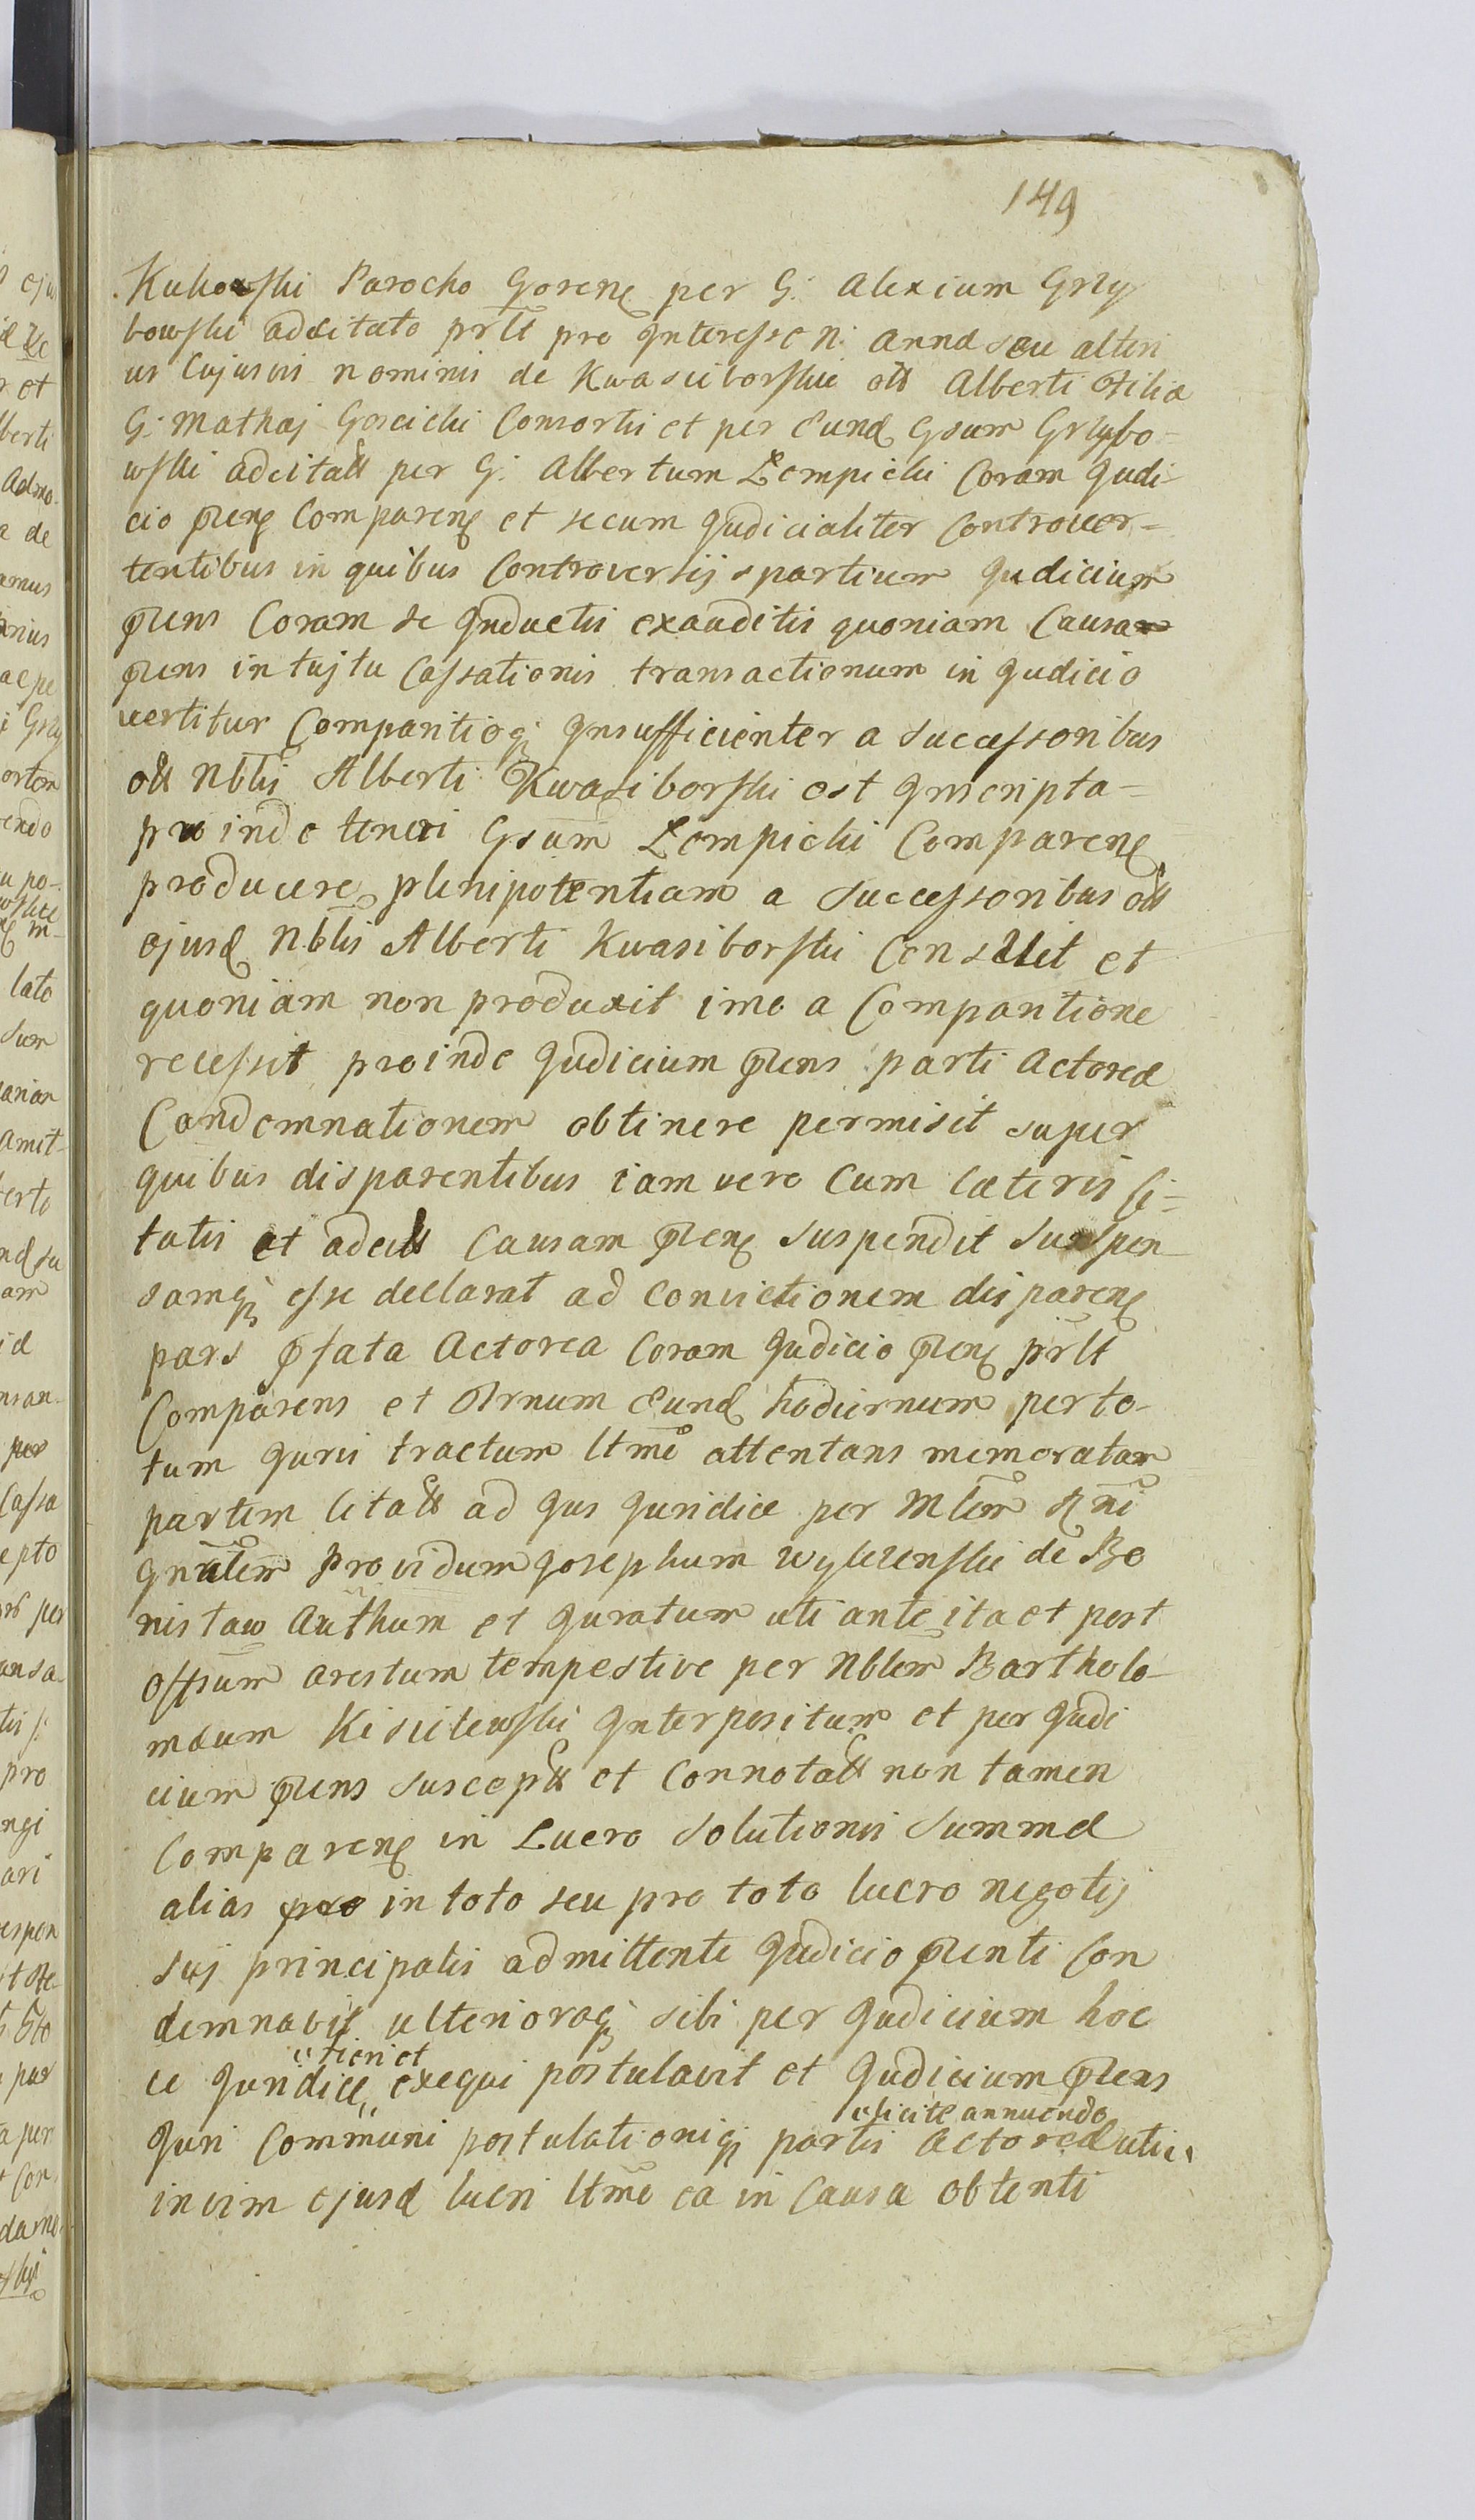 149
Kukowski Parocho Gorene per G: Alexium Grzy
bowski adcitato prlt pro Interesse N: Annæ seu alteri
us Cujusvis nominis de Kwasiborskie olt Alberti Filiæ
G: Mathæj Goscicki Consortis et per Eund Gsum Grzybo-
wski adcitatt per G: Albertum Łempicki Coram Judi-
cio pñene Comparene et secum Judicialiter Controver-
tentibus in quibus Controversijs partium Judicium
pñens Coram se Inductis exauditis quoniam Causa
pñens intujtu Cassationis transactionum in Judicio
vertitur Comparitioq; Insufficienter a Successoribus
olt Nblis Alberti Kwasiborski est Inscripta-
proinde teneri Gsum Łempicki Comparene
producere plenipotentiam a Successoribus olt
ejusd Nblis Alberti Kwasiborski Censuit et
quoniam non produxit imo a Comparitione
recessit proinde Judicium pñens parti Actoreæ
Condemnationem obtinere permisit super
quibus disparentibus iam vero Cum Cæteris Ci-
tatis et adcitt Causam pñene suspendit Suspen
samq; esse declarat ad Convictionem disparene
pars pfata Actorea Coram Judicio pñene prlt
Comparens et Trnum Eund hodiernum per to-
tum Juris tractum ltme attentans memoratam
partem Citatt ad Jus Juridice per Mlem Rni
Gnalem Providum Josephum Wylezenski de Bo
nisław Authum et Juratum uti ante ita et post
Offsum arestum tempestive per Nblem Bartholo-
mæum Kisielewski Interpositum et per Judi
cium pñens Susceptt et Connotatt non tamen
Comparene in Lucro Solutionis Summæ
alias in toto seu pro toto lucro negotij
suj principalis admittente Judicio pñenti Con
demnavit ulterioraq; sibi per Judicium hoc
"fieri et
ce Juridice" exequi postulavit et Judicium pñens
elicite annuendo
Juri Communi postulationiq; partis Actoreæ utii
in vim ejusd lucri ltme ea in Causa obtenti